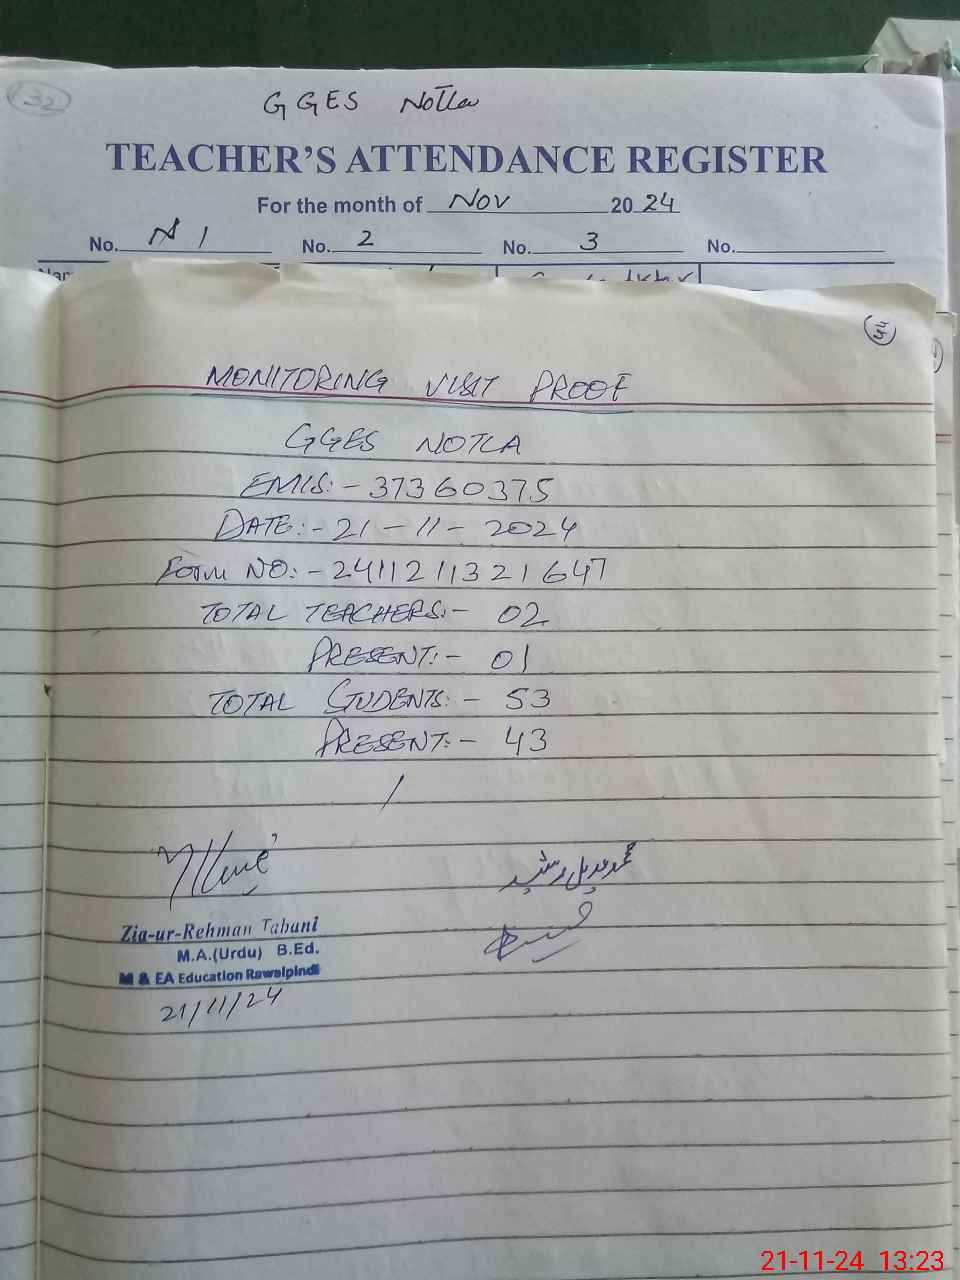 32
GGES Notla
TEACHER'S ATTENDANCE REGISTER
For the month of Nov 2024
No. 1 No. 2 No. 3 No.
44
MONITORING VISIT PROOF
GGES NOTLA
EMIS:- 37360375
DATE:- 21-11-2024
Form NO:- 2411211321647
TOTAL TEACHERS:- 02
PRESENT:- 01
TOTAL STUDENTS:- 53
PRESENT:- 43
محمد عدیل رشید
Zia-ur-Rehman Tabani
M.A.(Urdu) B.Ed.
M & EA Education Rawalpindi
21/11/24
21-11-24 13:23